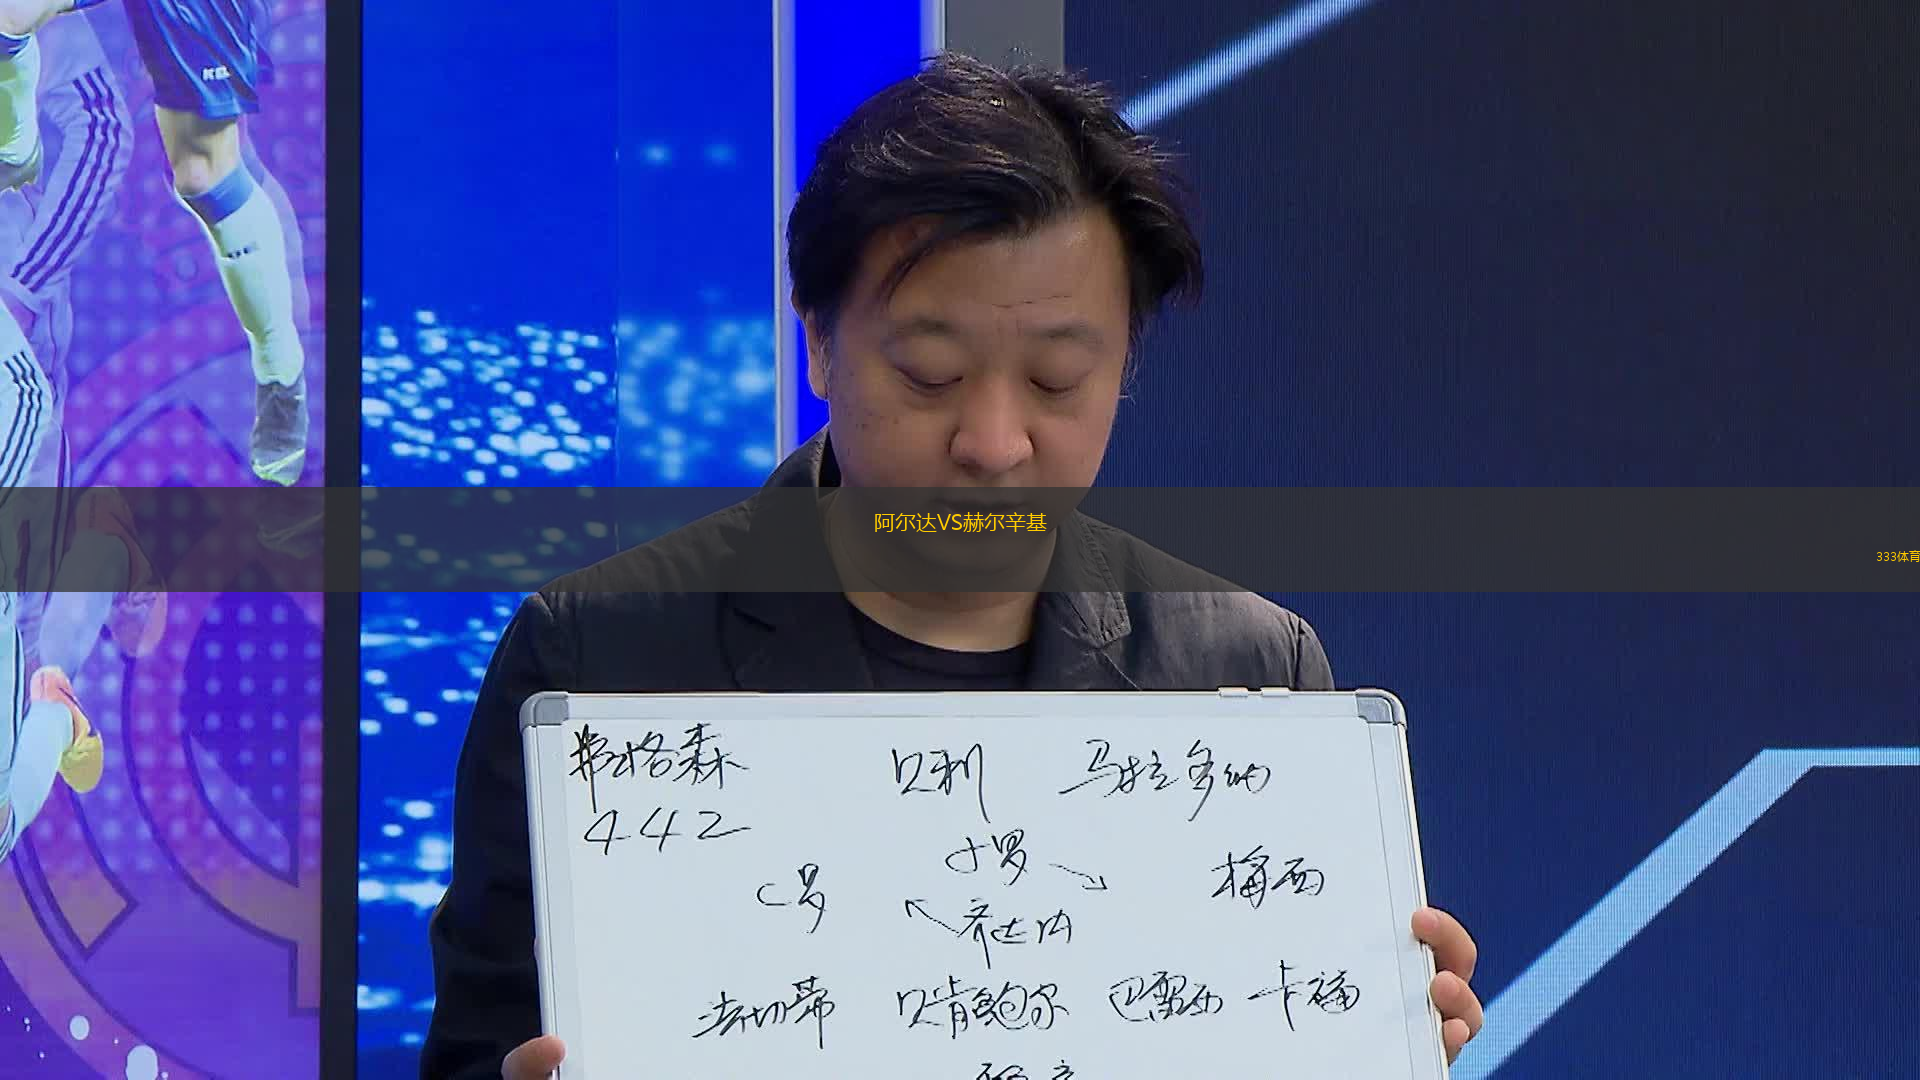 阿尔达VS赫尔辛基
333体育
弗格森 贝利 马拉多纳
442
小罗
C罗 梅西
齐达内
法切蒂 贝肯鲍尔 巴雷西 卡福